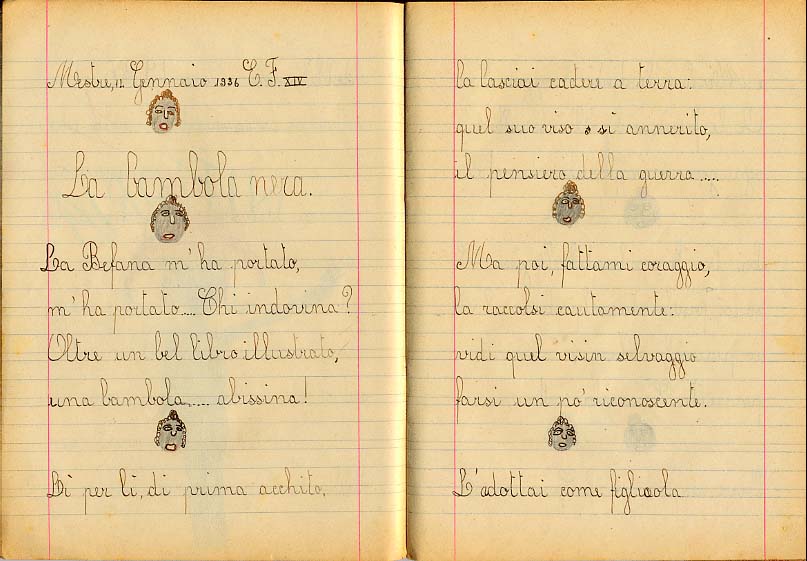 Mestre, 12 Gennaio 1936 E. F. XIV
La bambola nera.
La Befana m'ha portato,
m'ha portato.... Chi indovina?
Oltre un bel libro illustrato,
una bambola..... abissina!
Lì per lì, di prima acchito,
la lasciai cadere a terra:
quel suo viso s si annerito,
il pensiero della guerra.....
Ma poi, fattami coraggio,
la raccolsi cautamente:
vidi quel visin selvaggio
farsi un po' riconoscente.
L'adottai come figliola